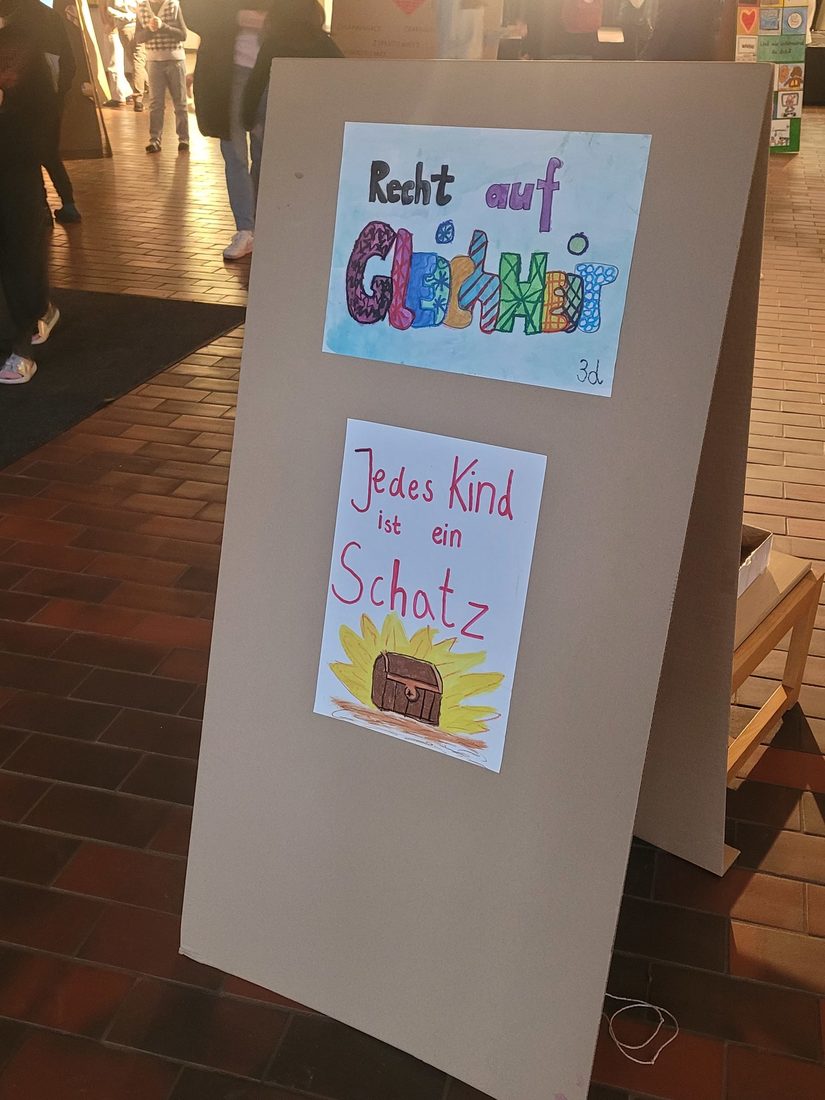 Recht auf
GLEiCHHEiT
3d
Jedes Kind
ist ein
Schatz